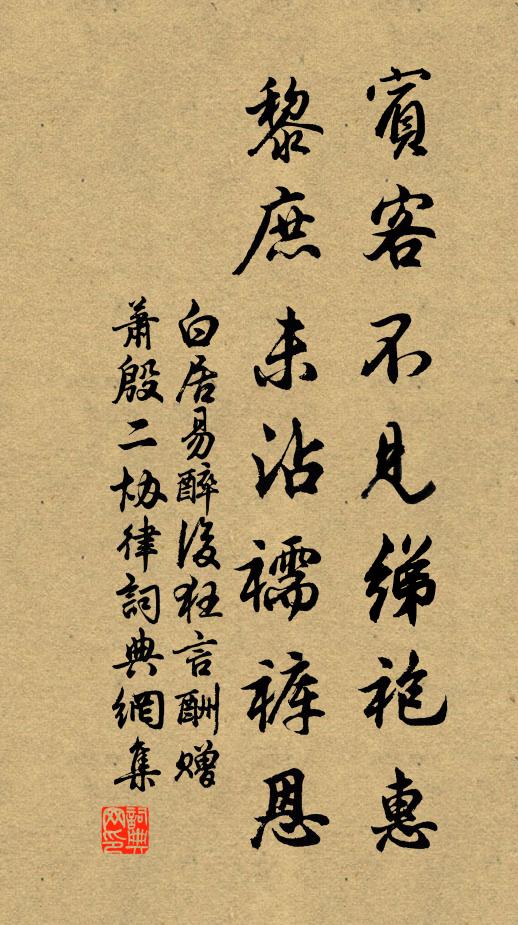 賓客不見綈袍惠
黎庶未沾襦褲恩
白居易醉後狂言酬贈
蕭殷二協律詞典網集
詞典网印